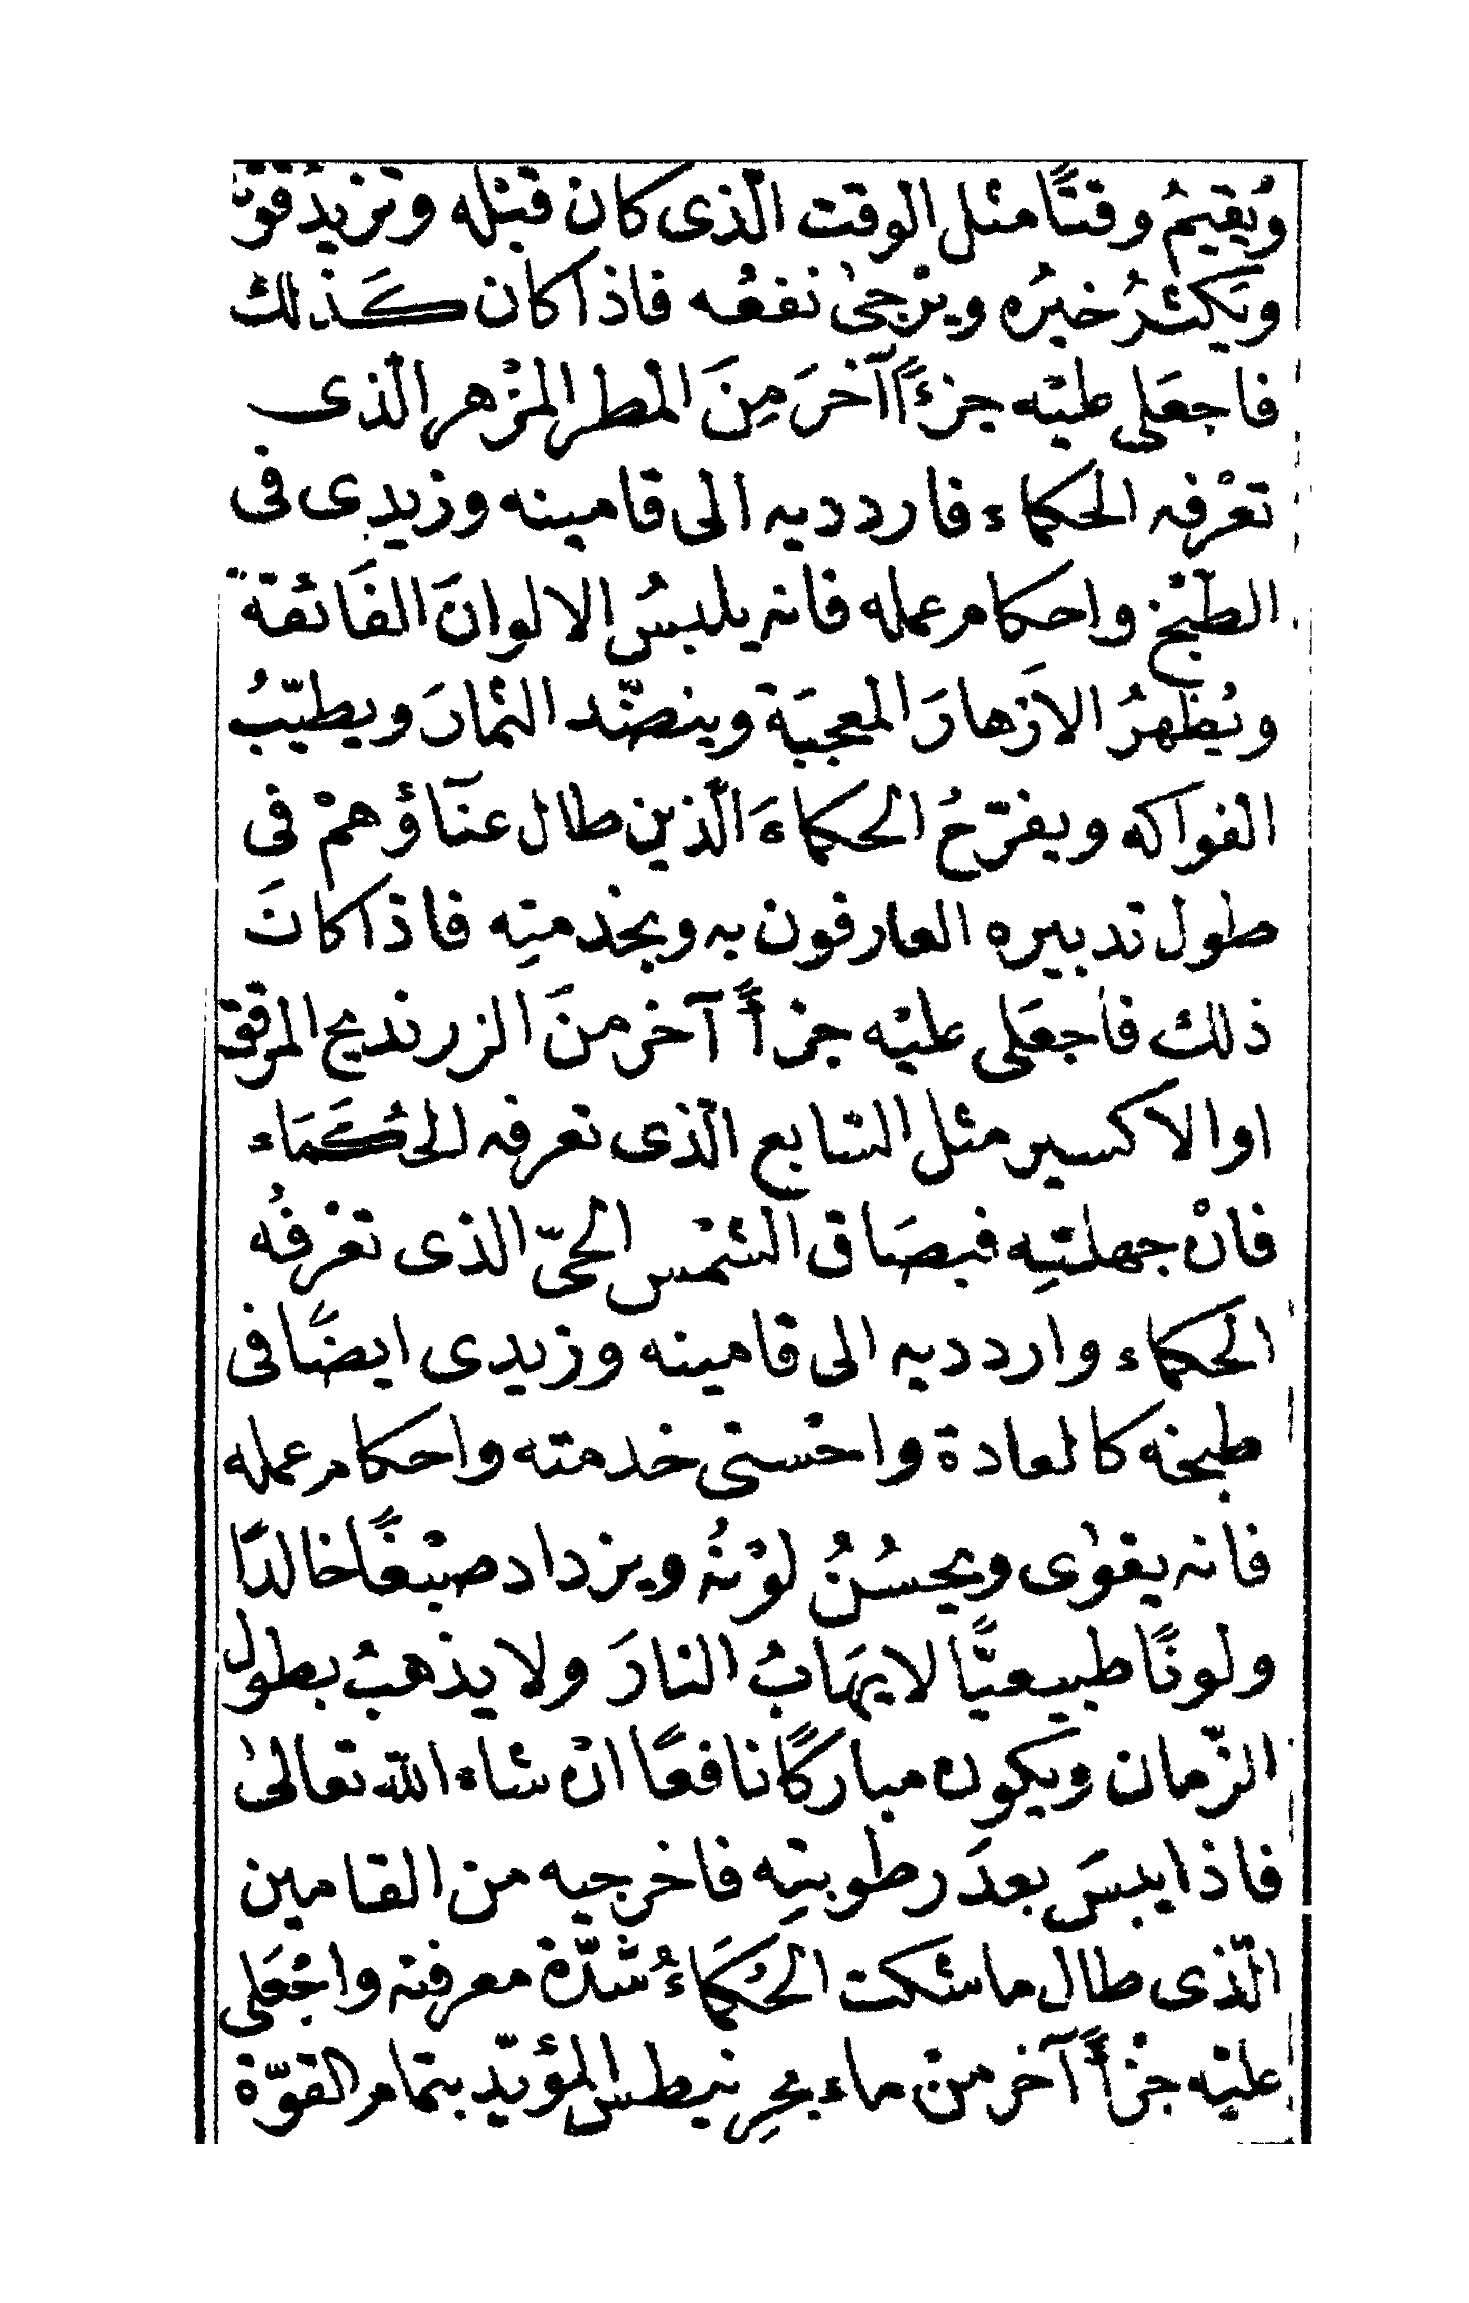 ويُقيمُ وقتًا مثل الوقت الّذى كان قبْله وتزيدُ قوّته
ويَكثرُ خيرُه ويرْجىٰ نفعُه فاذا كان كَذلك
فاجعَلى عليْه جزءًا آخرَ مِنَ المْطر المزْهر الّذى
تعْرفه الحكماء فارددیه الى قامينه وزيدى فى
الطبْخ واحكام عمله فانه يلبسُ الالوانَ الفَائقة
ويُظهرُ الاَزهارَ المعجبَة وينضّد الثمارَ ويطيّبُ
الفواكه ويفرّحُ الحكماءَ الّذين طال عنآؤهمْ فى
طول تدبيره العارفون به وبخدمتِه فاذا كانَ
ذلك فاجعَلى عليْه جزأً آخر منَ الزرنديج المرقق
او الاكسير مثل التابع الّذى تعرفه الحُكَمَاء
فانْ جهلتِيه فبصَاق الشمْس الحىّ الذى تعْرفُه
الحكماء وارددیه الى قامينه وزيدى ايضًا فى
طبخه كالعادة واحْسنى خدمته واحكام عمله
فانه يقوٰى ويحسُنُ لوْنُه ويزداد صبْغًا خالدًا
ولونًا طبيعيًّا لا يهَابُ النارَ ولا يذهبُ بطول
الزّمان ويكون مباركًا نافعًا انْ شاء الله تعالىٰ
فاذا يبسَ بعدَ رطوبتِه فاخرجيه من القامين
الّذى طال ما شكت الحُكَمَاءُ شدّة معرفته واجْعَلى
عليْه جزْأً آخر منْ ماء بحرِ نيطس المؤيّد بتمام القوّة